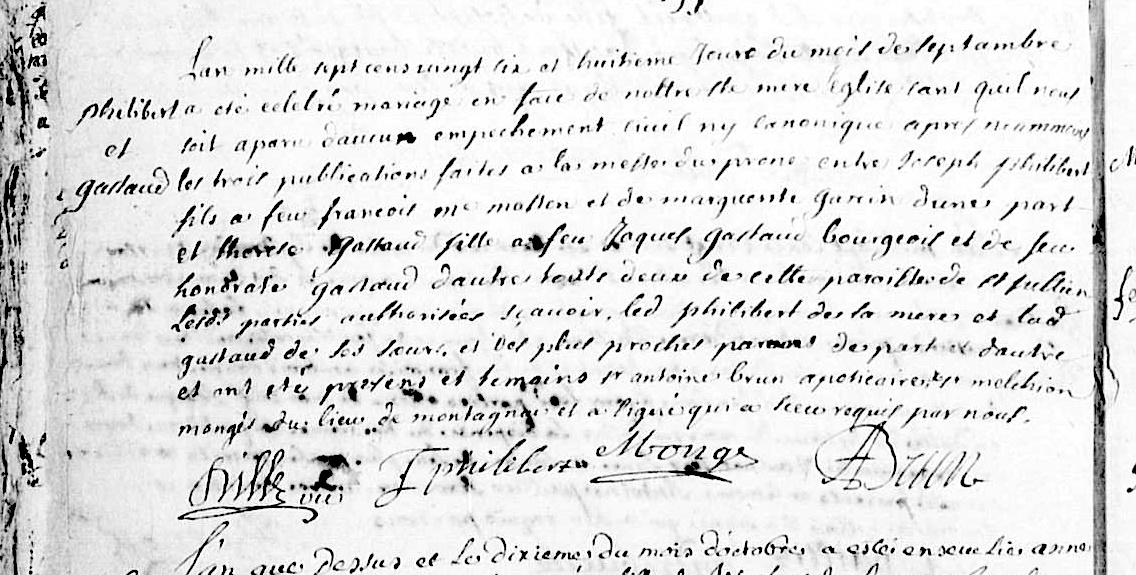 Lan mille sept cens vingt six et huitieme Jour du mois de septambre
philibert a eté celebré mariage en face de nottre ste mere Eglise sant quil nous
et soit aparu daucun empechement civil ny canonique apres
gastaud les trois publications faites a la messe du prone entre Joseph philibert
fils a feu francois me masson et de marguerite garcin dune part
et therese gastaud fille a feu Jaques gastaud bourgeois et de feu
honorade gastaud dautre touts deux de cette paroisse de st Jullien
lesds parties authorisées sçavoir, led philibert de sa mere et lad
gastaud de ses sœurs et des plus proches parans de part et dautre
et ont etés presens et temoins sr antoine brun apoticaire et sr melchion
monges du lieu de montagnac et a signé qui a sceu requis par nous.
J philibert Monge ABrun
Lan que dessus et le dixieme du mois doctobre a esté ensevelie anne